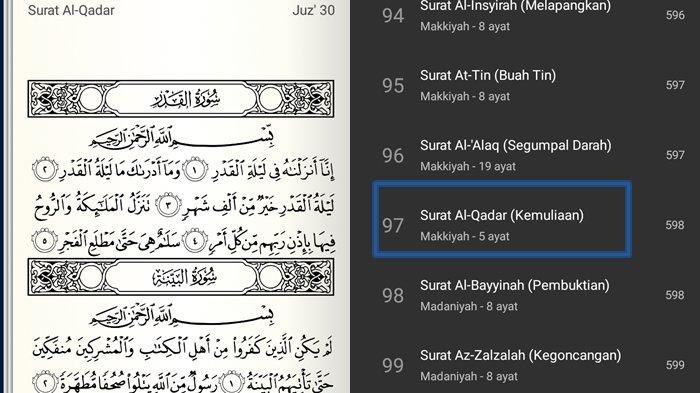 Surat Al-Qadar
Juz' 30
سُورَةُ الْقَدْرِ
بِسْمِ اللَّهِ الرَّحْمَٰنِ الرَّحِيمِ
إِنَّا أَنْزَلْنَاهُ فِي لَيْلَةِ الْقَدْرِ ١ وَمَا أَدْرَاكَ مَا لَيْلَةُ الْقَدْرِ ٢
لَيْلَةُ الْقَدْرِ خَيْرٌ مِنْ أَلْفِ شَهْرٍ ٣ تَنَزَّلُ الْمَلَائِكَةُ وَالرُّوحُ
فِيهَا بِإِذْنِ رَبِّهِمْ مِنْ كُلِّ أَمْرٍ ٤ سَلَامٌ هِيَ حَتَّىٰ مَطْلَعِ الْفَجْرِ ٥
سُورَةُ الْبَيِّنَةِ
بِسْمِ اللَّهِ الرَّحْمَٰنِ الرَّحِيمِ
لَمْ يَكُنِ الَّذِينَ كَفَرُوا مِنْ أَهْلِ الْكِتَابِ وَالْمُشْرِكِينَ مُنْفَكِّينَ
حَتَّىٰ تَأْتِيَهُمُ الْبَيِّنَةُ ١ رَسُولٌ مِنَ اللَّهِ يَتْلُو صُحُفًا مُطَهَّرَةً ٢
94 Surat Al-Insyirah (Melapangkan) 596
Makkiyah - 8 ayat
95 Surat At-Tin (Buah Tin) 597
Makkiyah - 8 ayat
96 Surat Al-'Alaq (Segumpal Darah) 597
Makkiyah - 19 ayat
97 Surat Al-Qadar (Kemuliaan) 598
Makkiyah - 5 ayat
98 Surat Al-Bayyinah (Pembuktian) 598
Madaniyah - 8 ayat
99 Surat Az-Zalzalah (Kegoncangan) 599
Madaniyah - 8 ayat